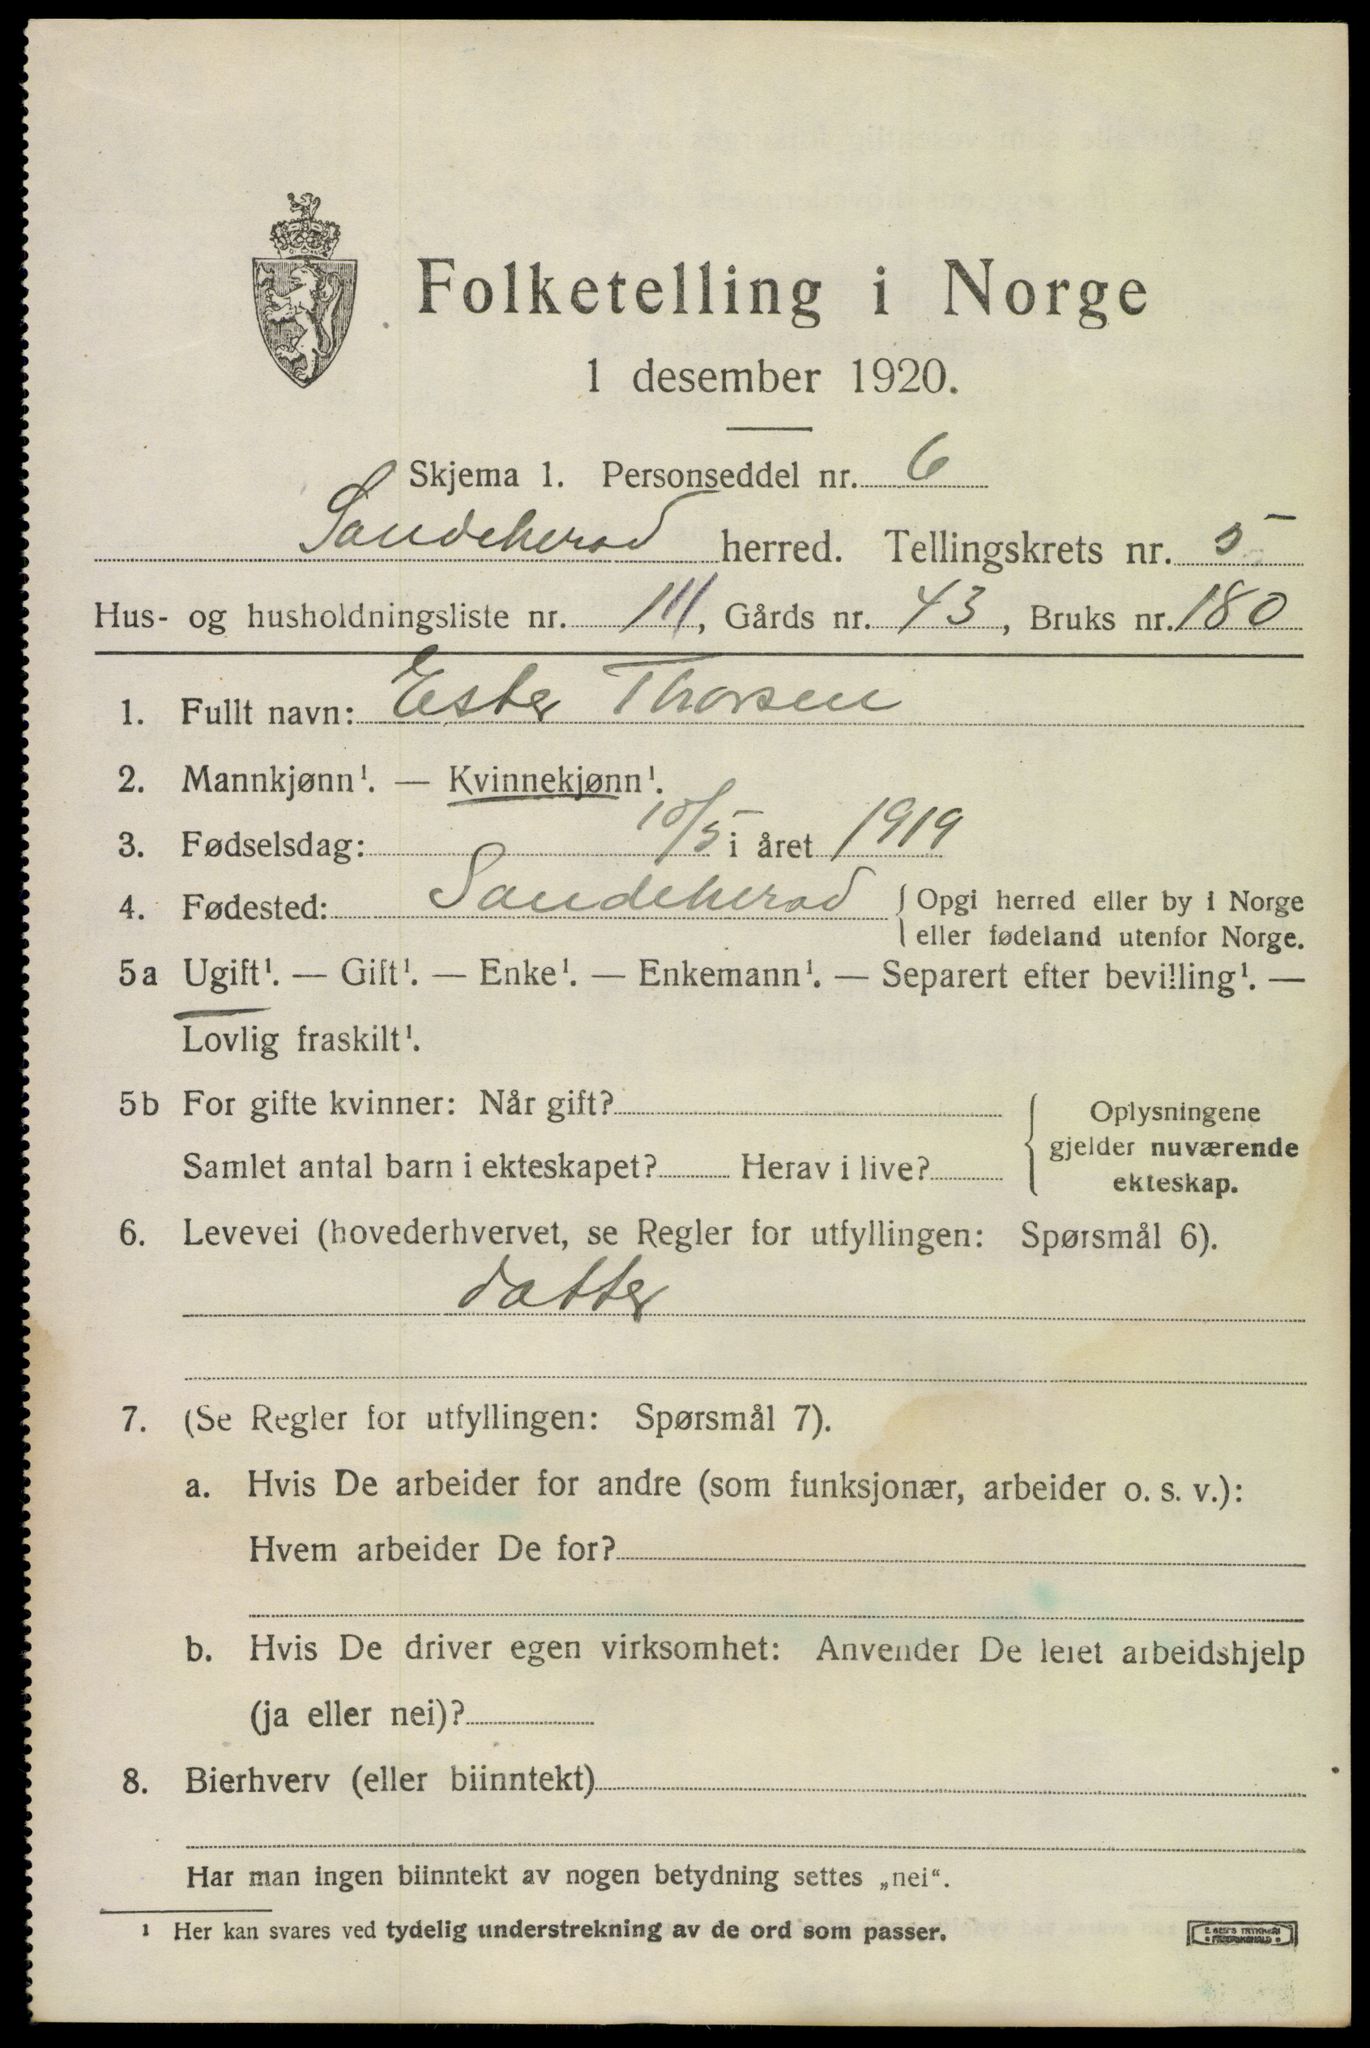 Folketelling i Norge
1 desember 1920.
Skjema 1. Personseddel nr. 6
Sandeherad herred. Tellingskrets nr. 5
Hus- og husholdningsliste nr. 111, Gårds nr. 43, Bruks nr. 180
1. Fullt navn: Ester Thorsen
2. Mannkjønn¹. — Kvinnekjønn¹.
3. Fødselsdag: 10/5 i året 1919
4. Fødested: Sandeherad { Opgi herred eller by i Norge
eller fødeland utenfor Norge.
5a Ugift¹. — Gift¹. — Enke¹. — Enkemann¹. — Separert efter bevilling¹. —
Lovlig fraskilt¹.
5b For gifte kvinner: Når gift?
Samlet antal barn i ekteskapet? Herav i live?
Oplysningene
gjelder nuværende
ekteskap.
6. Levevei (hovederhvervet, se Regler for utfyllingen: Spørsmål 6).
datter
7. (Se Regler for utfyllingen: Spørsmål 7).
a. Hvis De arbeider for andre (som funksjonær, arbeider o. s. v.):
Hvem arbeider De for?
b. Hvis De driver egen virksomhet: Anvender De leiet arbeidshjelp
(ja eller nei)?
8. Bierhverv (eller biinntekt)
Har man ingen biinntekt av nogen betydning settes „nei“.
¹ Her kan svares ved tydelig understrekning av de ord som passer.